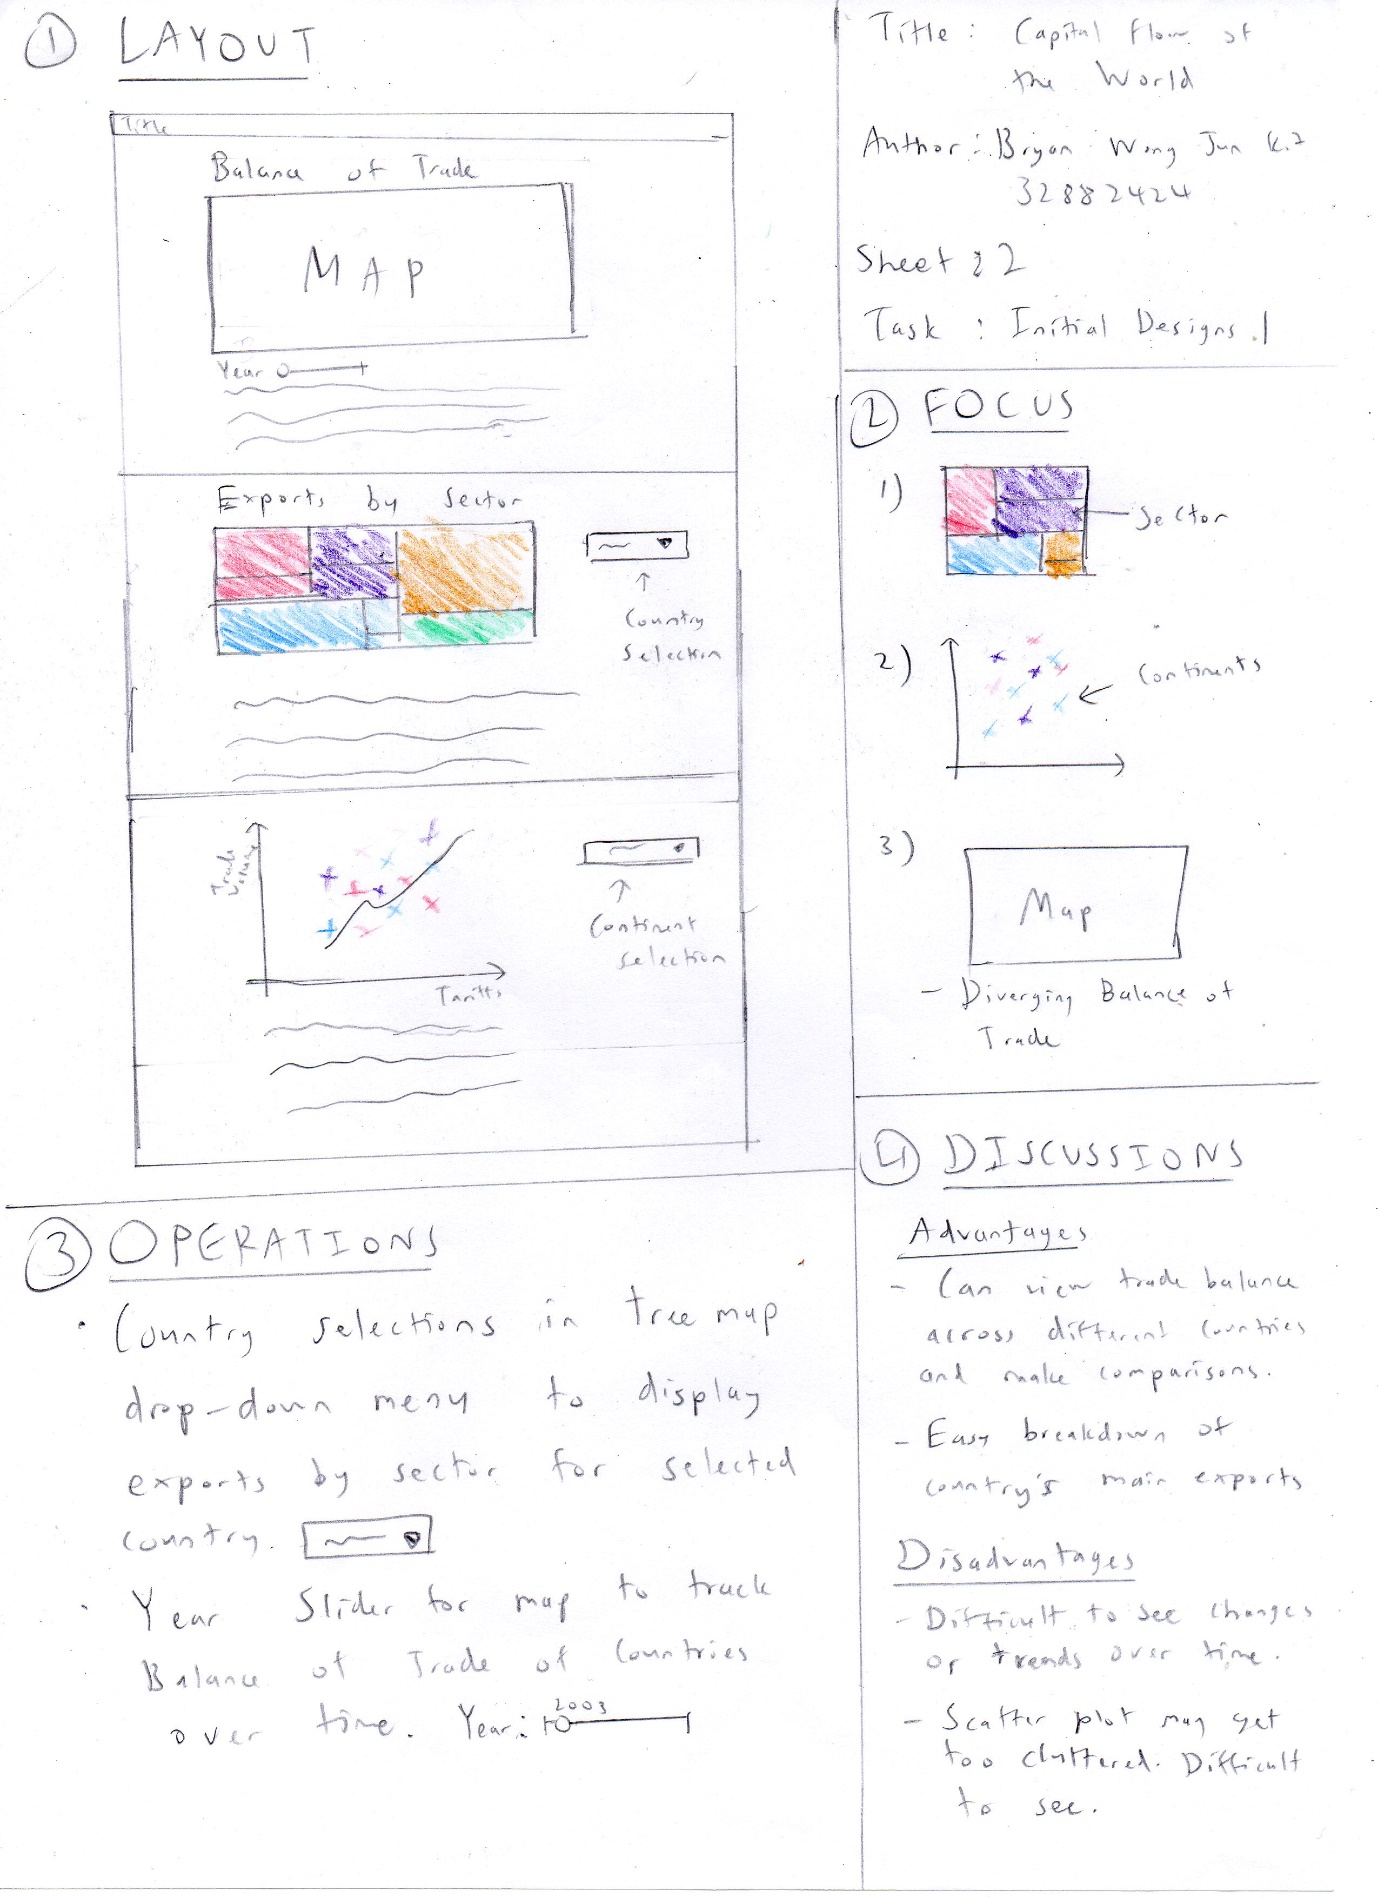 ① LAYOUT
Title
Balance of Trade
MAP
Year
Exports by sector
Country
Selection
Trade
Volume
Tariffs
Continent
selection
Title : Capital Flow of
the World
Author : Bryan Wong Jun
32882424
Sheet : 2
Task : Initial Designs 1
② FOCUS
1)
Sector
2)
Continents
3)
Map
- Diverging Balance of
Trade
③ OPERATIONS
• Country selections in tree map
drop-down menu to display
exports by sector for selected
country.
• Year Slider for map to track
Balance of Trade of Countries
over time. Year:
2003
④ DISCUSSIONS
Advantages
- Can view trade balance
across different countries
and make comparisons.
- Easy breakdown of
country's main exports
Disadvantages
- Difficult to see changes
or trends over time.
- Scatter plot may get
too cluttered. Difficult
to see.